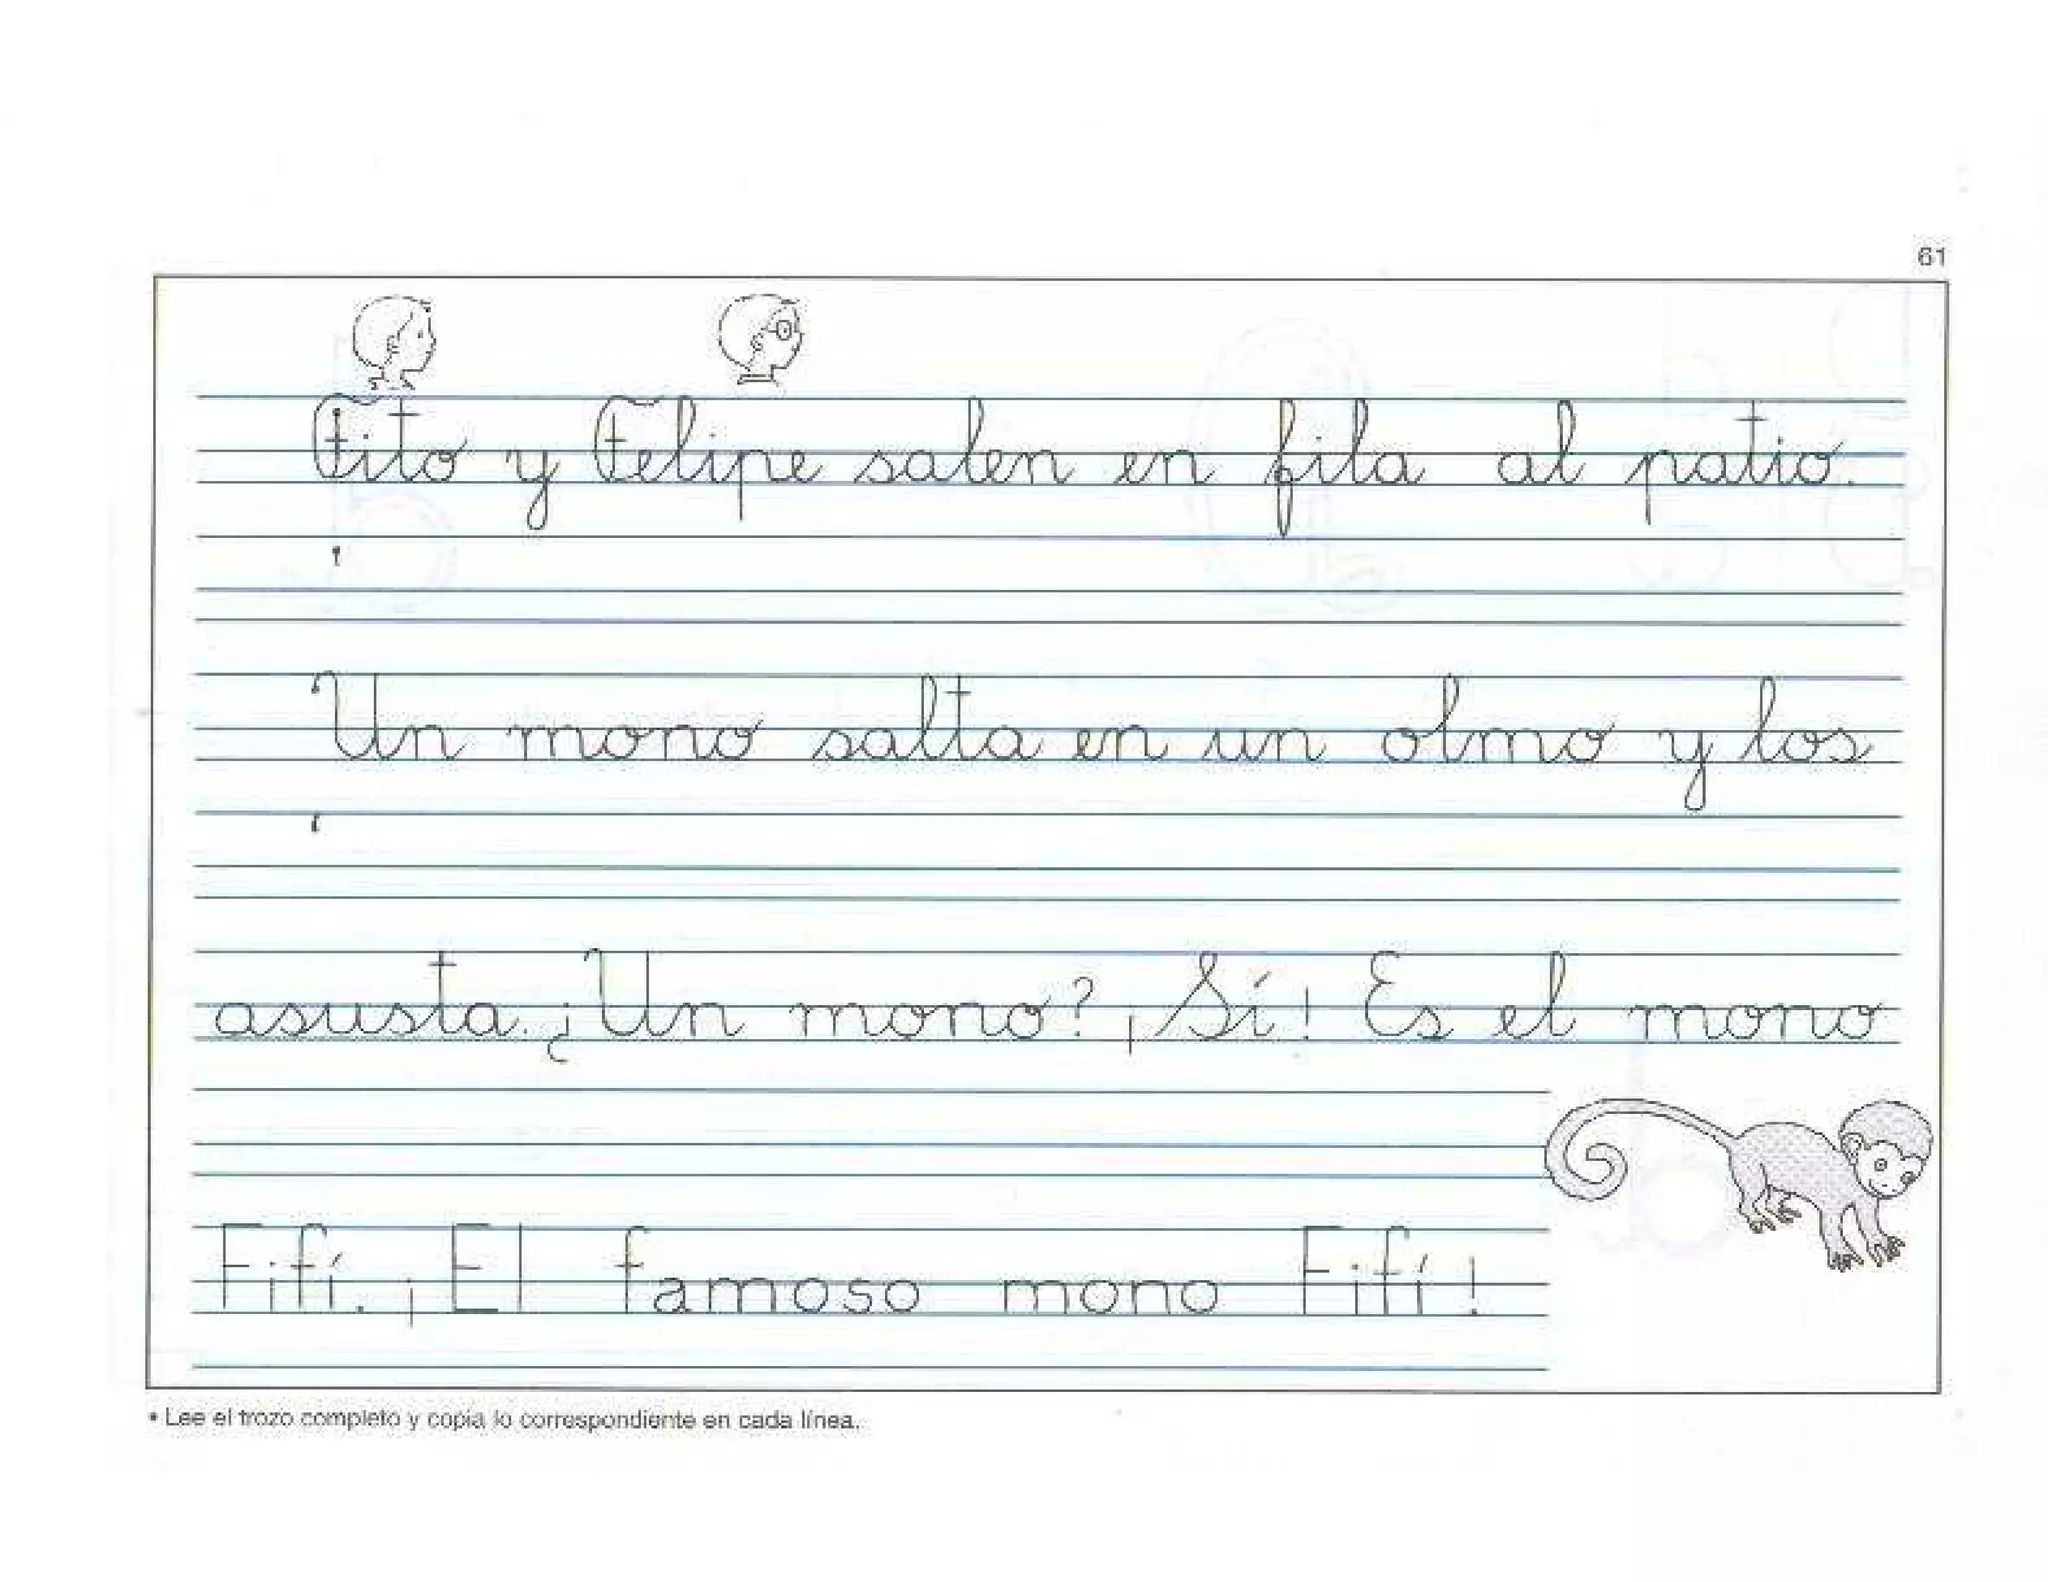 61
Fito y Felipe salen en fila al patio.
Un mono salta en un olmo y los
asusta. ¿Un mono? ¡Sí! Es el mono
Fifí. ¡El famoso mono Fifí!
• Lee el trozo completo y copia lo correspondiente en cada línea.